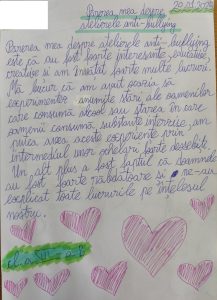 Părerea mea despre
atelierele anti-bullying
Părerea mea despre atelierele anti-bullying
este că au fost foarte interesante, educative,
creative și am învățat foarte multe lucruri.
Mă bucur că am avut ocazia să
experimentez anumite stări ale oamenilor
care consumă alcool sau starea în care
oamenii consumă substanțe interzise, am
putea avea aceste experiențe prin
intermediul unor ochelari foarte deosebiți.
Un alt plus a fost faptul că doamnele
au fost foarte răbdătoare și ne-au
explicat toate lucrurile pe înțelesul
nostru.